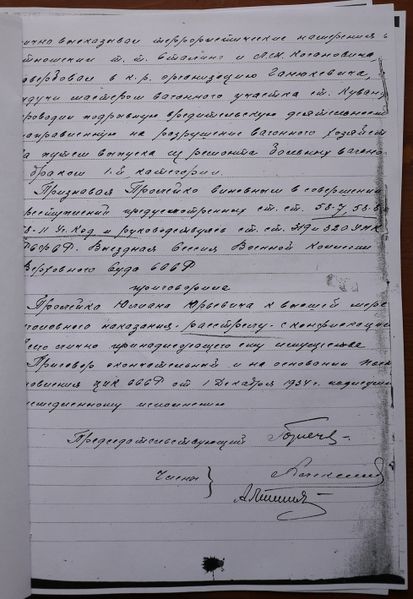 лично высказывал террористические намерения в
отношении т.т. Сталина и Л.М. Кагановича,
завербовал в к.р. организацию Ганюкевича,
будучи мастером вагонного участка ст.
проводил подрывную вредительскую деятельность
направленную на разрушение вагонного хозяйст
ва путем выпуска из ремонта больных вагонов
браком 1-й категории.
Признавая Пролейко виновным в совершении
преступлений предусмотренных ст. ст. 58-7, 58-8
58-11 Уг. Код и руководствуясь ст. ст. 319 и 320 УПК
РСФСР. Выездная Сессия Военной Коллегии
Верховного Суда СССР
приговорила
Пролейко Юлиана Юрьевича к высшей мере
уголовного наказания - расстрелу - с конфискацией
всего лично принадлежащего ему имущества.
Приговор окончательный и на основании Поста
новления ЦИК СССР от 1 Декабря 1934 г. подлежит
немедленному исполнению
Председательствующий
Члены }